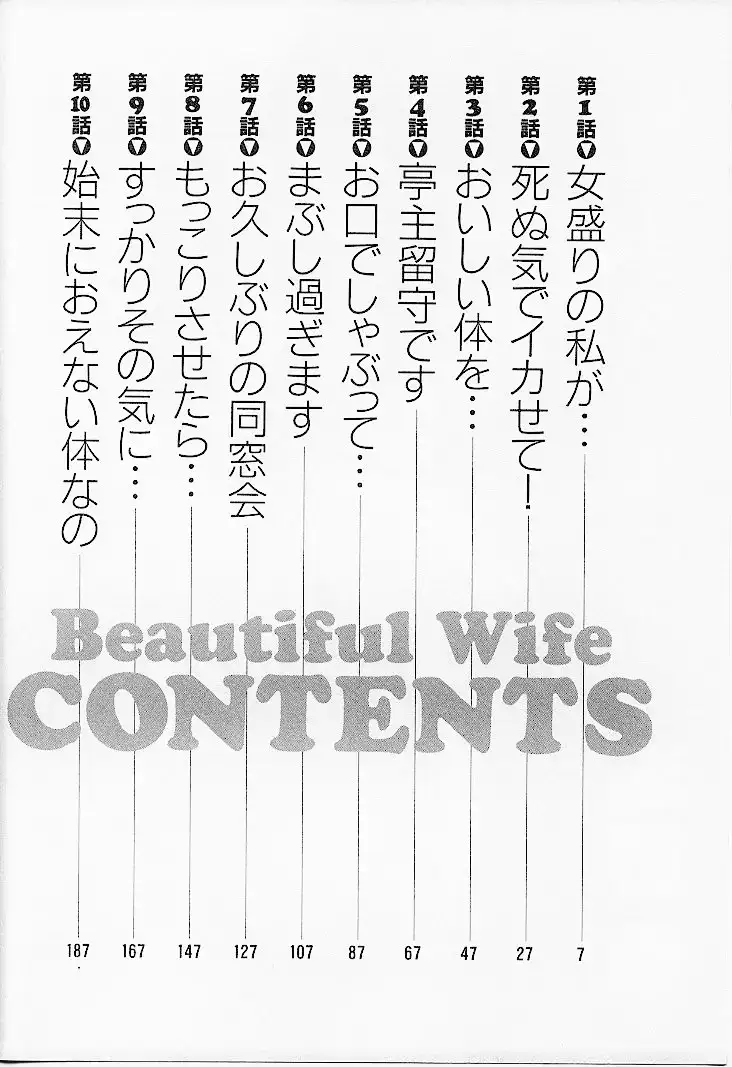 第1話▼女盛りの私が… 7
第2話▼死ぬ気でイカせて! 27
第3話▼おいしい体を… 47
第4話▼亭主留守です 67
第5話▼お口でしゃぶって… 87
第6話▼まぶし過ぎます 107
第7話▼お久しぶりの同窓会 127
第8話▼もっこりさせたら… 147
第9話▼すっかりその気に… 167
第10話▼始末におえない体なの 187
Beautiful Wife
CONTENTS